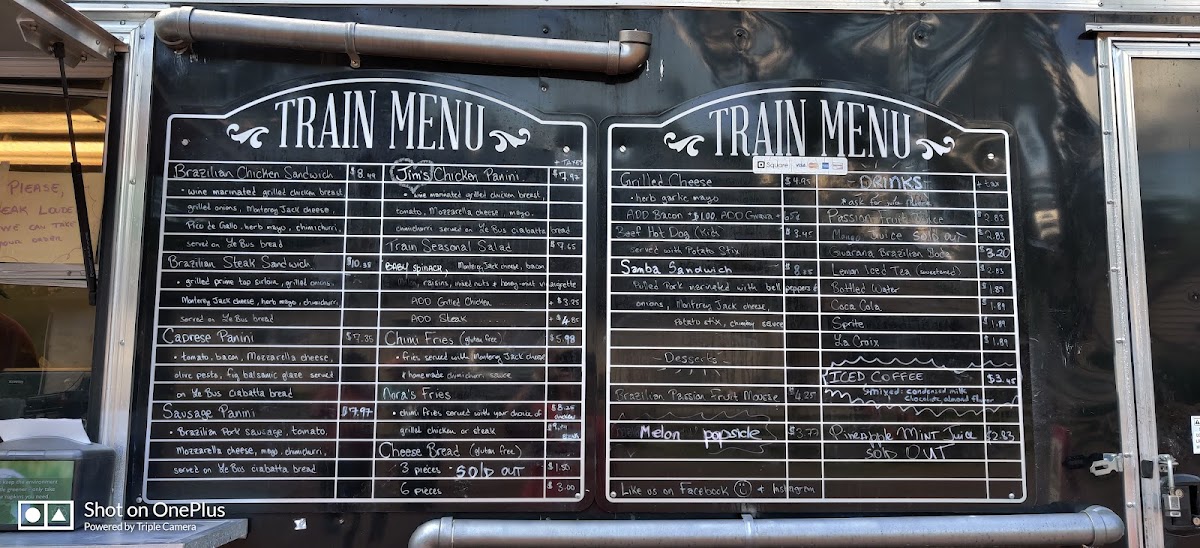 PLEASE,
SPEAK LOUDER
WE CAN TAKE
your order
TRAIN MENU
+ TAXES
Brazilian Chicken Sandwich $8.49
• wine marinated grilled chicken breast
grilled onions, Monterey Jack cheese,
Pico de Gallo, herb mayo, chimichurri,
served on Ye Bus bread
Brazilian Steak Sandwich $10.58
• grilled prime top sirloin, grilled onions,
Monterey Jack cheese, herb mayo, chimichurri,
served on Ye Bus bread
Caprese Panini $7.35
• tomato, bacon, Mozzarella cheese,
olive pesto, fig balsamic glaze served
on Ye Bus ciabatta bread
Sausage Panini $7.97
• Brazilian Pork sausage, tomato,
Mozzarella cheese, mayo, chimichurri,
served on Ye Bus ciabatta bread
Jim's Chicken Panini $7.97
• wine marinated grilled chicken breast,
tomato, Mozzarella cheese, mayo,
chimichurri served on Ye Bus ciabatta bread
Train Seasonal Salad $7.65
BABY SPINACH, Monterey Jack cheese, bacon
raisins, mixed nuts + honey-mint vinaigrette
ADD Grilled Chicken + $3.75
ADD Steak + $4.85
Chimi Fries (gluten free) $5.98
• fries served with Monterey Jack cheese
& homemade chimichurri sauce
Nora's Fries
• chimi fries served with your choice of $8.25 CHICKEN
grilled chicken or steak
Cheese Bread (gluten free)
3 pieces • SOLD OUT $1.50
6 pieces $3.00
TRAIN MENU
Square VISA
Grilled Cheese $4.95
• herb garlic mayo
ADD Bacon + $1.00, ADD Guava + 65¢
Beef Hot Dog (Kids $3.45
served with Potato Stix
Samba Sandwich
Pulled Pork marinated with bell peppers &
onions, Monterey Jack cheese,
Potato stix, chimichu sauce
- Desserts -
Brazilian Passion Fruit Mousse $4.25
Melon popsicle $3.77
Like us on Facebook & Instagram
- DRINKS + tax
Passion Fruit Juice $2.83
Mango Juice SOLD OUT $2.83
Guarana Brazilian Soda $3.20
Lemon Iced Tea (sweetened) $2.83
Bottled Water $1.89
Coca Cola 1.89
Sprite $1.89
La Croix $1.89
ICED COFFEE $3.45
mixed: condensed milk
chocolate, almond flavor
Pineapple MINT Juice $2.83
SOLD OUT
Shot on OnePlus
Powered by Triple Camera